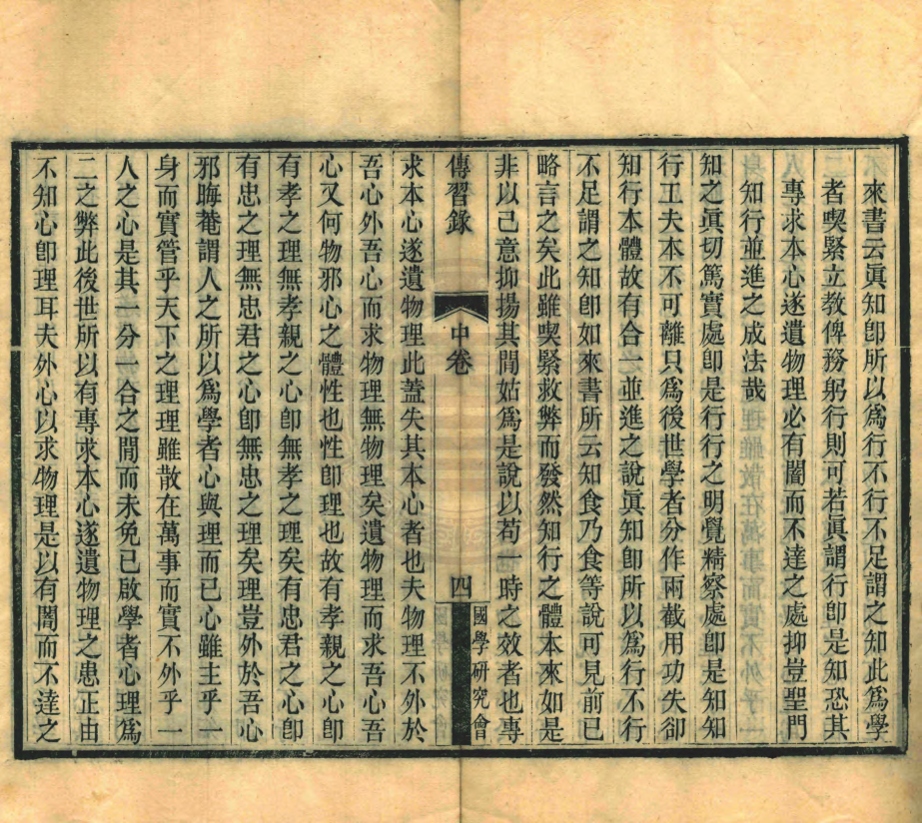 來書云眞知卽所以爲行不行不足謂之知此爲學
者喫緊立教俾務躬行則可若眞謂行卽是知恐其
專求本心遂遺物理必有闇而不達之處抑豈聖門
知行並進之成法哉
知之眞切篤實處卽是行行之明覺精察處卽是知知
行工夫本不可離只爲後世學者分作兩截用功失卻
知行本體故有合一並進之說眞知卽所以爲行不行
不足謂之知卽如來書所云知食乃食等說可見前已
略言之矣此雖喫緊救弊而發然知行之體本來如是
非以己意抑揚其閒姑爲是說以苟一時之效者也專
傳習錄
中卷
四
國學研究會
求本心遂遺物理此蓋失其本心者也夫物理不外於
吾心外吾心而求物理無物理矣遺物理而求吾心吾
心又何物邪心之體性也性卽理也故有孝親之心卽
有孝之理無孝親之心卽無孝之理矣有忠君之心卽
有忠之理無忠君之心卽無忠之理矣理豈外於吾心
邪晦菴謂人之所以爲學者心與理而已心雖主乎一
身而實管乎天下之理理雖散在萬事而實不外乎一
人之心是其一分一合之閒而未免已啟學者心理爲
二之弊此後世所以有專求本心遂遺物理之患正由
不知心卽理耳夫外心以求物理是以有闇而不達之